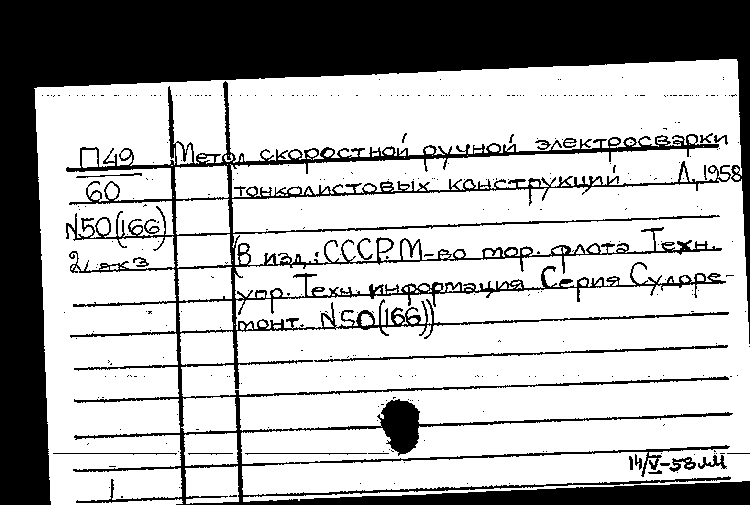 П49
60
N50(166)
2 экз
Метод скоростной ручной электросварки
тонколистовых конструкций. Л., 1958
(В изд.: СССР. М-во мор. флота Техн.
упр. Техн. информация Серия Судоре-
монт. N50(166))
14/V-58
1